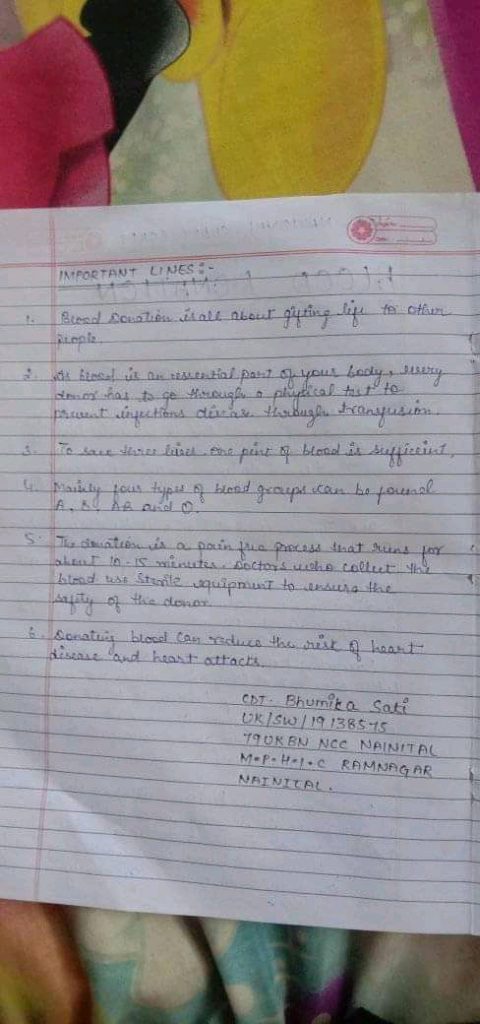 IMPORTANT LINES:-
1. Blood Donation is all about gifting life to other
people.
2. As blood is an essential part of your body, every
donor has to go through a physical test to
prevent infections disease through transfusion.
3. To save three lives one pint of blood is sufficient.
4. Mainly four types of blood groups can be found
A, B, AB and O.
5. The donation is a pain free process that runs for
about 10-15 minutes. Doctors who collect the
blood use sterile equipment to ensure the
safety of the donor.
6. Donating blood can reduce the risk of heart
disease and heart attacks.
CDT. Bhumika Sati
UK/SW/19138575
79UKBN NCC NAINITAL
M.P.H.I.C RAMNAGAR
NAINITAL.